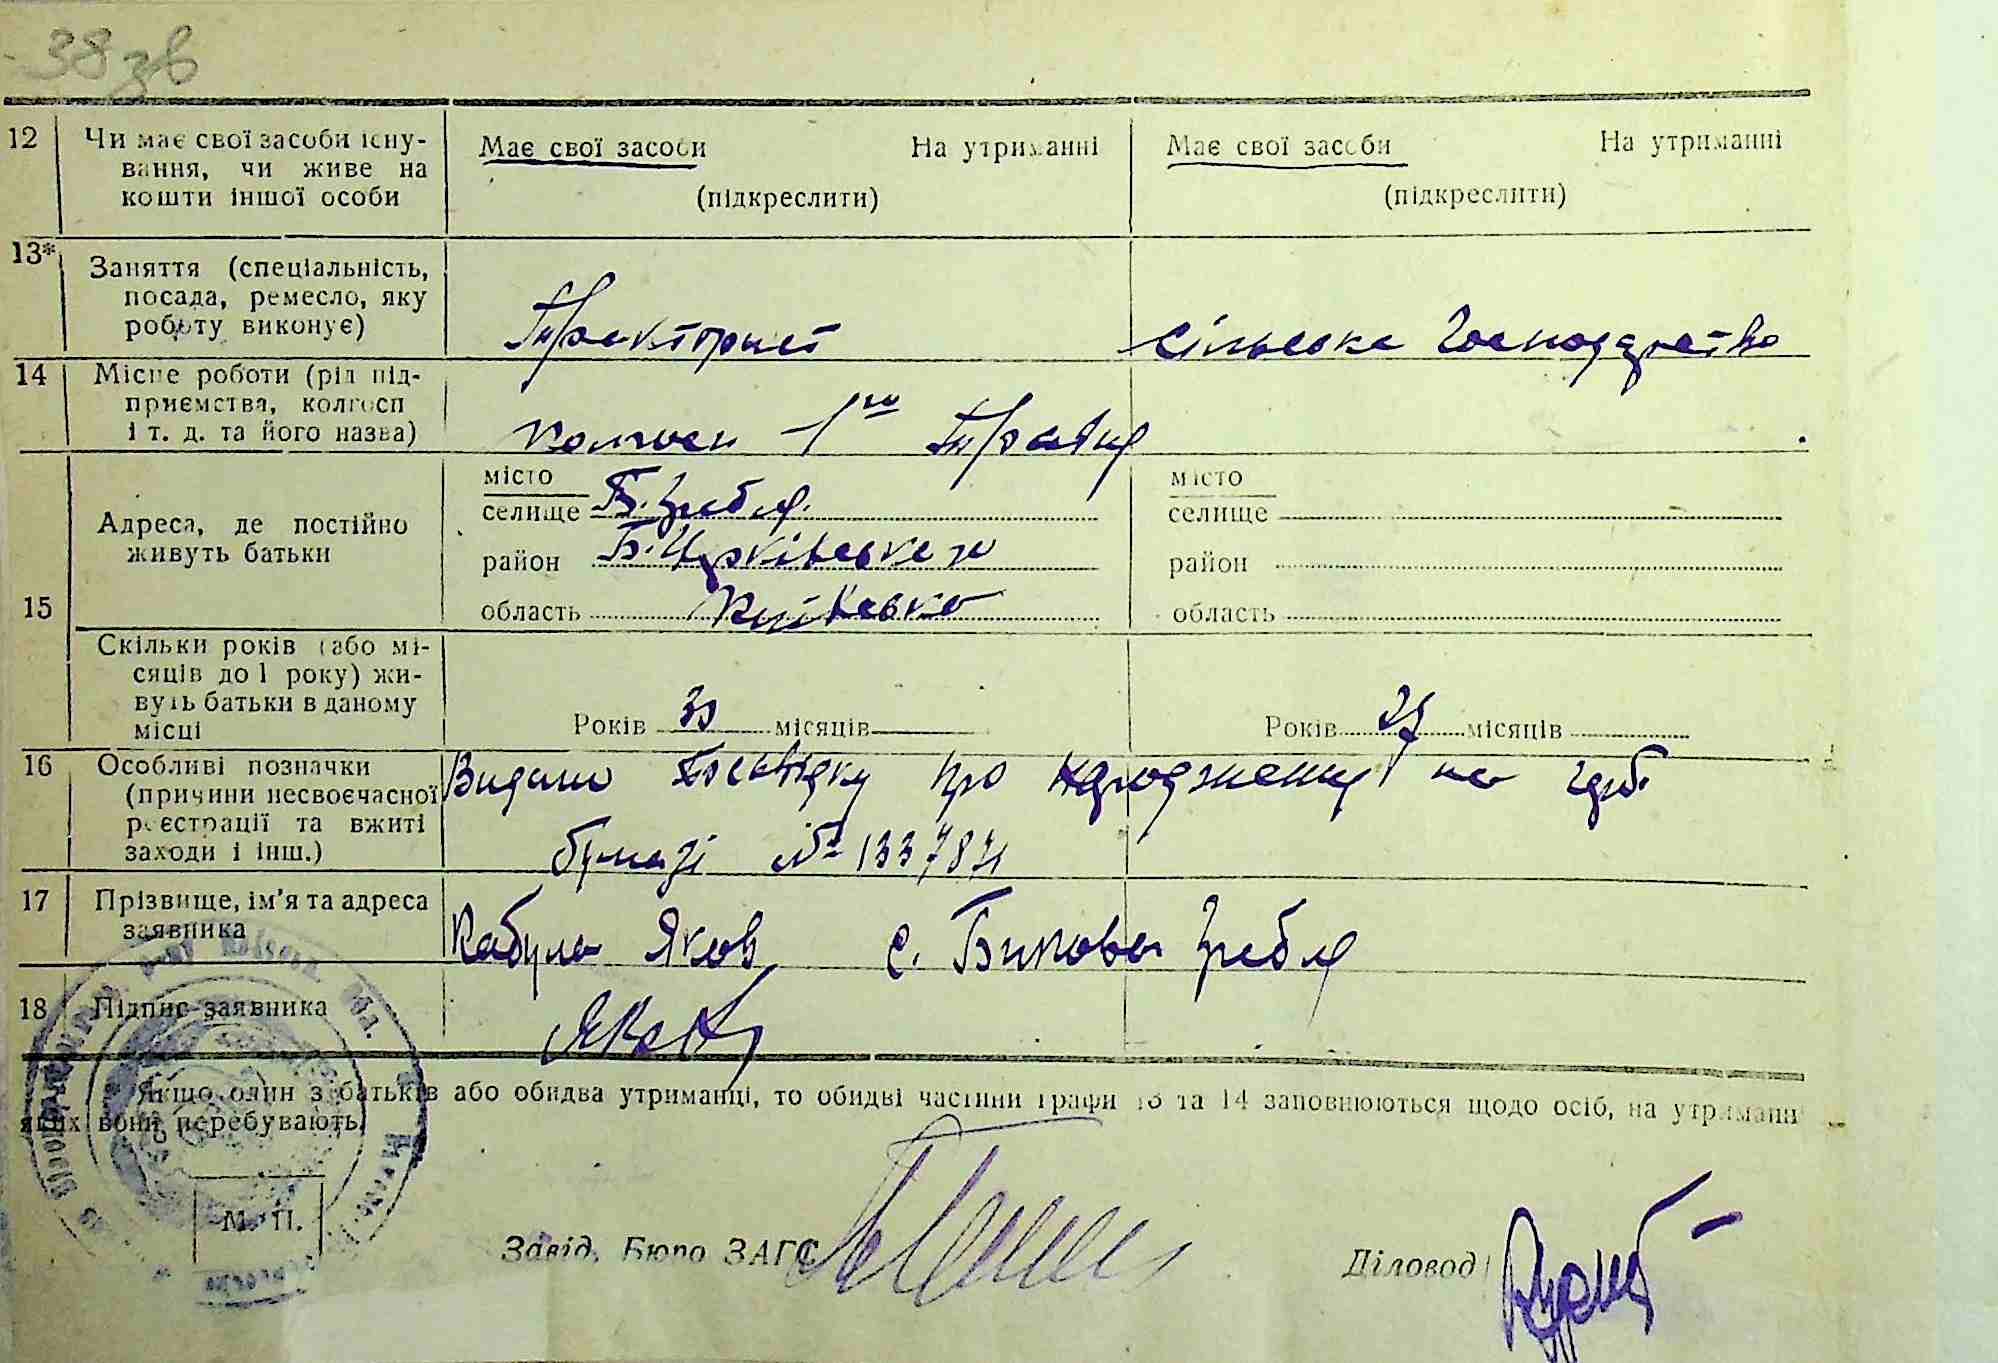 38 зв
12 Чи має свої засоби існу- Має свої засоби На утриманні Має свої засоби На утриманні
вання, чи живе на
кошти іншої особи (підкреслити) (підкреслити)
13* Заняття (спеціальність,
посада, ремесло, яку
роботу виконує) Тракторист сільське господарство
14 Місце роботи (рід під-
приємства, колгосп
і т. д. та його назва) колгосп 1го Травня
15 Адреса, де постійно
живуть батьки
місто
селище Б. Гребля.
район Б. Церківського
область Київська
місто
селище
район
область
Скільки років (або мі-
сяців до 1 року) жи-
вуть батьки в даному
місці Років 33 місяців Років 27 місяців
16 Особливі позначки
(причини несвоєчасної
реєстрації та вжиті
заходи і інш.)
Видано посвідку про народження на герб.
бумазі №
17 Прізвище, ім'я та адреса
заявника
Кабула Яков с. Бикова Гребля
18 Підпис заявника
* Якщо один з батьків або обидва утриманці, то обидві частини графи 13 та 14 заповнюються щодо осіб, на утриманні
яких вони перебувають.
М. П.
Завід. Бюро ЗАГС Діловод